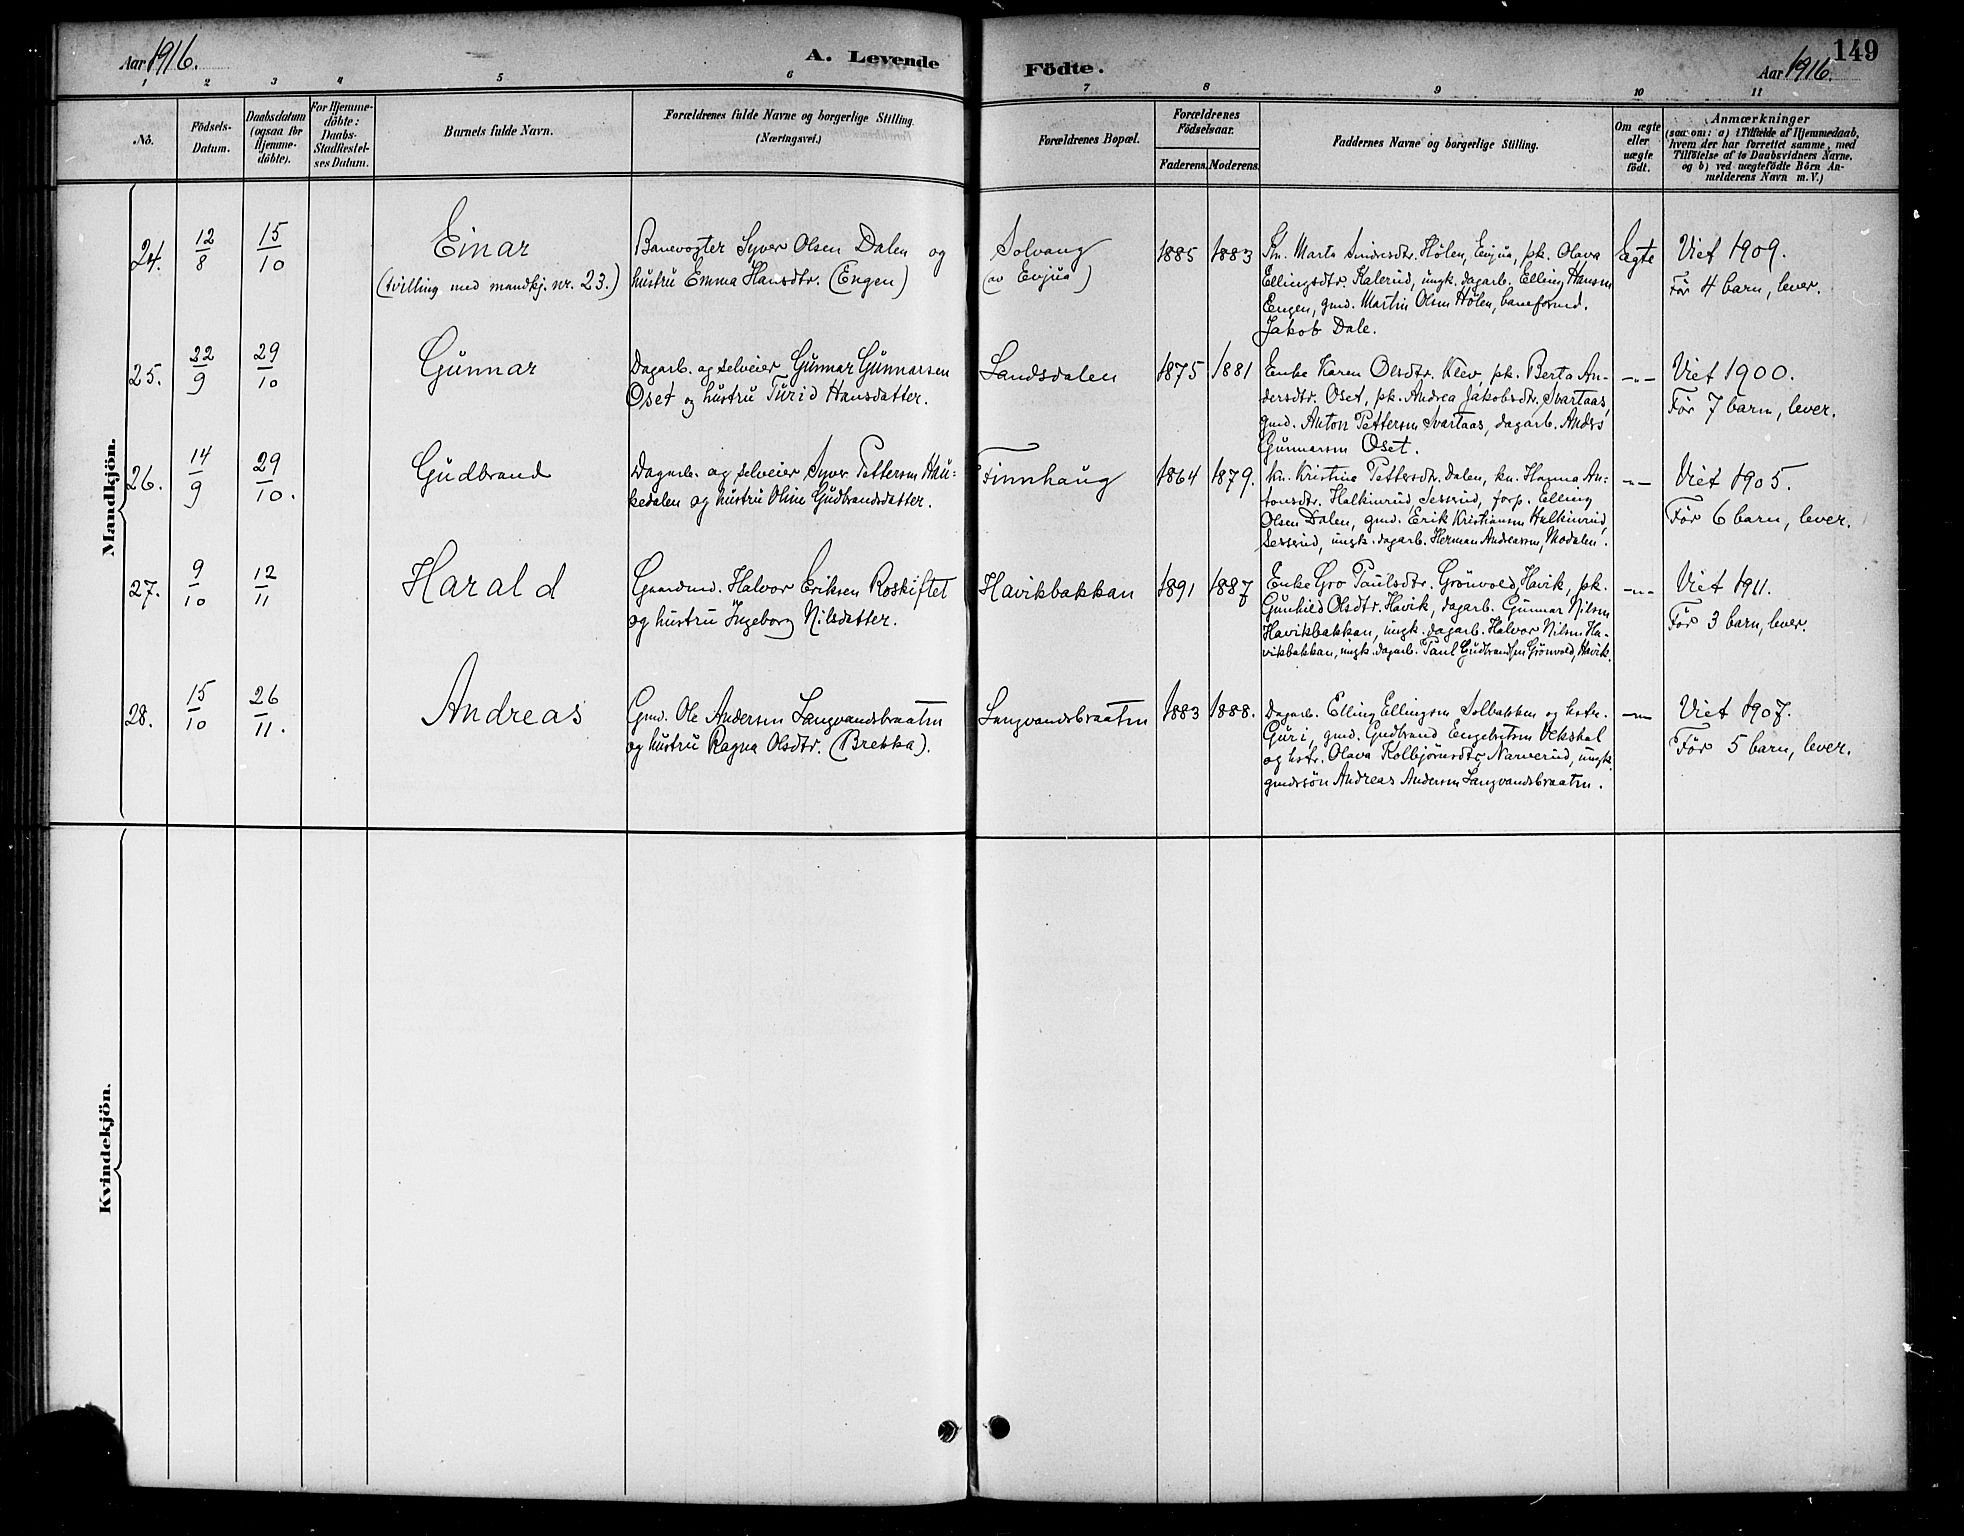 Aar 1916.
A. Levende Födte.
Aar 1916.
149
1 2 3 4 5 6 7 8 9 10 11
No.
Födsels-
Datum.
Daabsdatum
(ogsaa for
Hjemme-
döbte).
For Hjemme-
döbte:
Daabs-
Stadfestel-
ses Datum.
Barnets fulde Navn.
Forældrenes fulde Navne og borgerlige Stilling.
(Næringsvei.)
Forældrenes Bopæl.
Forældrenes
Födselsaar.
Faderens. Moderens.
Faddernes Navne og borgerlige Stilling.
Om ægte
eller
uægte
födt.
Anmærkninger
(saa om: a) i Tilfælde af Hjemmedaab,
hvem der har forrettet samme, med
Tilföielse af to Daabsvidners Navne,
og b) ved uægtefödte Börn An-
melderens Navn m. V.)
Mandkjön.
24.
12/8
15/10
Einar
(tvilling med mandkj. nr. 23.)
Banevogter Syver Olsen Dalen og
hustru Emma Hansdtr. (Engen)
Solvang
(av Evjua)
1885
1883
Kn. Marta Sindresdtr. Hølen, Evjua, pk. Olava
Ellingsdtr. Kalerud, ungk. dagarb. Elling Hansen
Engen, gmd. Martin Olsen Hølen, baneformd.
Jakob Dale.
Ægte
Viet 1909.
Før 4 barn, lever.
25.
22/9
29/10
Gunnar
Dagarb. og selveier Gunnar Gunnarsen
Oset og hustru Turid Hansdatter.
Landsdalen
1875
1881
Enke Karen Olsdtr. Klev, pk. Berta An-
dersdtr. Oset, pk. Andrea Jakobsdtr. Svartaas,
gmd. Anton Pettersen Svartaas, dagarb. Anders
Gunnarsen Oset.
-"-
Viet 1900.
Før 7 barn, lever.
26.
14/9
29/10.
Gudbrand
Dagarb. og selveier Syver Pettersen Hau-
kedalen og hustru Oline Gudbrandsdatter.
Finnhaug
1864
1879.
kn. Kristine Pettersdtr. Dalen, kn. Hanna An-
tonsdtr. Halkinrud, Sesserud, forp. Elling
Olsen Dalen, gmd. Erik Kristiansen Halkinrud,
Sesserud, ungk. dagarb. Herman Andreassen, Modalen.
-"-
Viet 1905.
Før 6 barn, lever.
27.
9/10
12/11
Harald
Gaardmd. Halvor Eriksen Roskiftet
og hustru Ingeborg Nilsdatter.
Havikbakkan
1891
1887
Enke Gro Paulsdtr. Grönvold, Havik, pk.
Gunhild Olsdtr. Havik, dagarb. Gunnar Nilsen
Havikbakkan, ungk. dagarb. Halvor Nilsen Ha-
vikbakkan, ungk. dagarb. Paul Gudbrandsen Grönvold, Havik.
-"-
Viet 1911.
Før 3 barn, lever.
28.
15/10
26/11.
Andreas
Gmd. Ole Andersen Langvandsbraaten
og hustru Ragna Olsdtr. (Brekka).
Langvandsbraaten
1883
1888.
Dagarb. Elling Ellingsen Solbakken og hstr.
Guri, gmd. Gudbrand Engebretsen Vekshal
og hstr. Olava Kolbjørnsdtr. Narverud, ungk.
gmdssön Andreas Andersen Langvandsbraaten.
-"-
Viet 1907.
Før 5 barn, lever.
Kvindekjön.